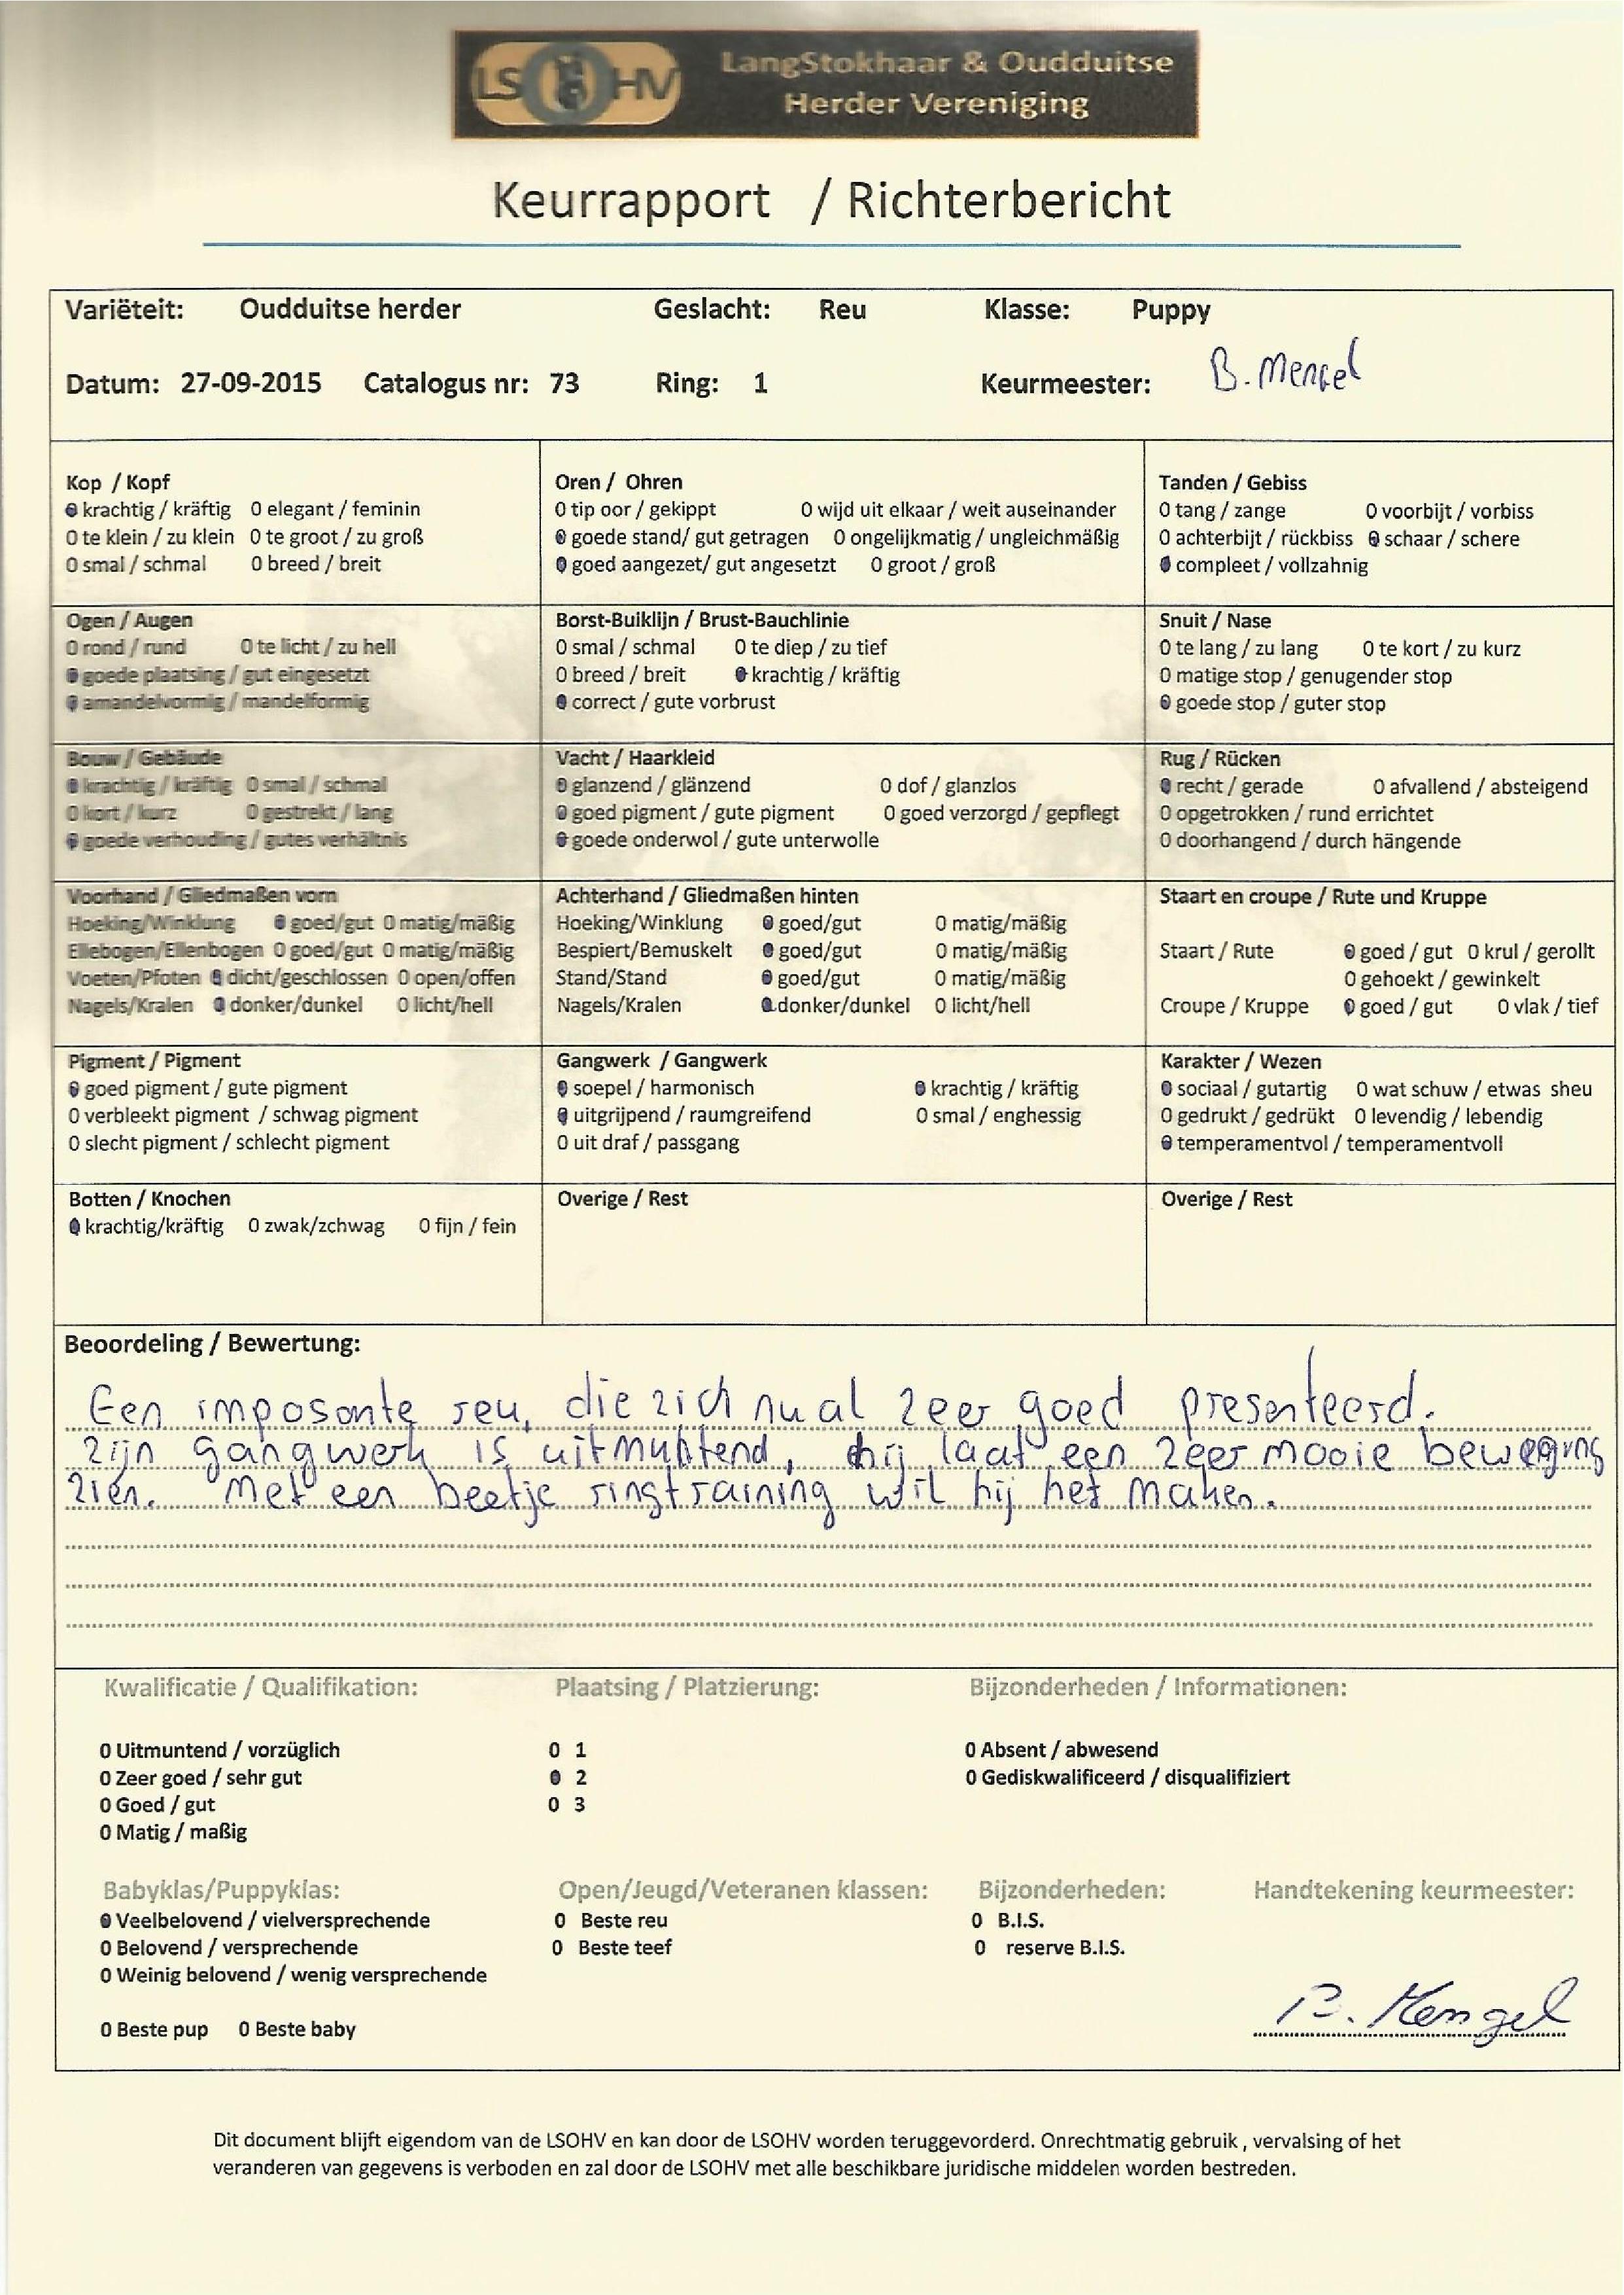 LSOHV LangStokhaar & Oudduitse
Herder Vereniging
Keurrapport / Richterbericht
Variëteit: Oudduitse herder Geslacht: Reu Klasse: Puppy
Datum: 27-09-2015 Catalogus nr: 73 Ring: 1 Keurmeester: B. Mengel
Kop / Kopf
0 krachtig / kräftig 0 elegant / feminin
0 te klein / zu klein 0 te groot / zu groß
0 smal / schmal 0 breed / breit
Oren / Ohren
0 tip oor / gekippt 0 wijd uit elkaar / weit auseinander
0 goede stand/ gut getragen 0 ongelijkmatig / ungleichmäßig
0 goed aangezet/ gut angesetzt 0 groot / groß
Tanden / Gebiss
0 tang / zange 0 voorbijt / vorbiss
0 achterbijt / rückbiss 0 schaar / schere
0 compleet / vollzahnig
Ogen / Augen
0 rond / rund 0 te licht / zu hell
0 goede plaatsing / gut eingesetzt
0 amandelvormig / mandelformig
Borst-Buiklijn / Brust-Bauchlinie
0 smal / schmal 0 te diep / zu tief
0 breed / breit 0 krachtig / kräftig
0 correct / gute vorbrust
Snuit / Nase
0 te lang / zu lang 0 te kort / zu kurz
0 matige stop / genugender stop
0 goede stop / guter stop
Bouw / Gebäude
0 krachtig / kräftig 0 smal / schmal
0 kort / kurz 0 gestrekt / lang
0 goede verhouding / gutes verhältnis
Vacht / Haarkleid
0 glanzend / glänzend 0 dof / glanzlos
0 goed pigment / gute pigment 0 goed verzorgd / gepflegt
0 goede onderwol / gute unterwolle
Rug / Rücken
0 recht / gerade 0 afvallend / absteigend
0 opgetrokken / rund errichtet
0 doorhangend / durch hängende
Voorhand / Gliedmaßen vorn
Hoeking/Winklung 0 goed/gut 0 matig/mäßig
Ellebogen/Ellenbogen 0 goed/gut 0 matig/mäßig
Voeten/Pfoten 0 dicht/geschlossen 0 open/offen
Nagels/Kralen 0 donker/dunkel 0 licht/hell
Achterhand / Gliedmaßen hinten
Hoeking/Winklung 0 goed/gut 0 matig/mäßig
Bespiert/Bemuskelt 0 goed/gut 0 matig/mäßig
Stand/Stand 0 goed/gut 0 matig/mäßig
Nagels/Kralen 0 donker/dunkel 0 licht/hell
Staart en croupe / Rute und Kruppe
Staart / Rute 0 goed / gut 0 krul / gerollt
0 gehoekt / gewinkelt
Croupe / Kruppe 0 goed / gut 0 vlak / tief
Pigment / Pigment
0 goed pigment / gute pigment
0 verbleekt pigment / schwag pigment
0 slecht pigment / schlecht pigment
Gangwerk / Gangwerk
0 soepel / harmonisch 0 krachtig / kräftig
0 uitgrijpend / raumgreifend 0 smal / enghessig
0 uit draf / passgang
Karakter / Wezen
0 sociaal / gutartig 0 wat schuw / etwas sheu
0 gedrukt / gedrükt 0 levendig / lebendig
0 temperamentvol / temperamentvoll
Botten / Knochen
0 krachtig/kräftig 0 zwak/zchwag 0 fijn / fein
Overige / Rest
Overige / Rest
Beoordeling / Bewertung:
Een imposante reu, die zich nu al zeer goed presenteerd.
Zijn gangwerk is uitmuntend, hij laat een zeer mooie beweging
zien. Met een beetje ringtraining wil hij het maken.
Kwalificatie / Qualifikation: Plaatsing / Platzierung: Bijzonderheden / Informationen:
0 Uitmuntend / vorzüglich 0 1 0 Absent / abwesend
0 Zeer goed / sehr gut 0 2 0 Gediskwalificeerd / disqualifiziert
0 Goed / gut 0 3
0 Matig / maßig
Babyklas/Puppyklas: Open/Jeugd/Veteranen klassen: Bijzonderheden: Handtekening keurmeester:
0 Veelbelovend / vielversprechende 0 Beste reu 0 B.I.S.
0 Belovend / versprechende 0 Beste teef 0 reserve B.I.S.
0 Weinig belovend / wenig versprechende
0 Beste pup 0 Beste baby B. Mengel
Dit document blijft eigendom van de LSOHV en kan door de LSOHV worden teruggevorderd. Onrechtmatig gebruik , vervalsing of het
veranderen van gegevens is verboden en zal door de LSOHV met alle beschikbare juridische middelen worden bestreden.